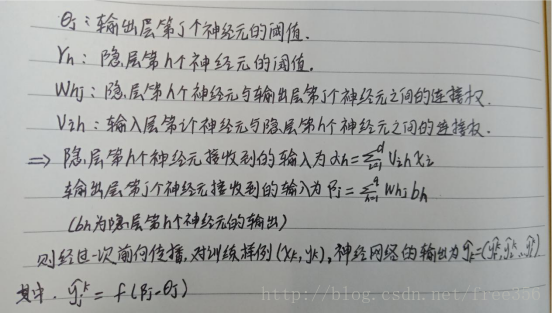 θj：输出层第j个神经元的阈值.
γh：隐层第h个神经元的阈值.
Whj：隐层第h个神经元与输出层第j个神经元之间的连接权.
Vih：输入层第i个神经元与隐层第h个神经元之间的连接权.
⇒ 隐层第h个神经元接收到的输入为αh=∑_{i=1}^{d} Vih xi
输出层第j个神经元接收到的输入为βj=∑_{h=1}^{q} Whj bh
(bh为隐层第h个神经元的输出)
则经过一次前向传播,对训练样例(xk,yk),神经网络的输出为ŷk=(ŷ1^k,ŷ2^k,…,ŷl^k)
其中. ŷj^k = f(βj-θj)
http://blog.csdn.net/free356